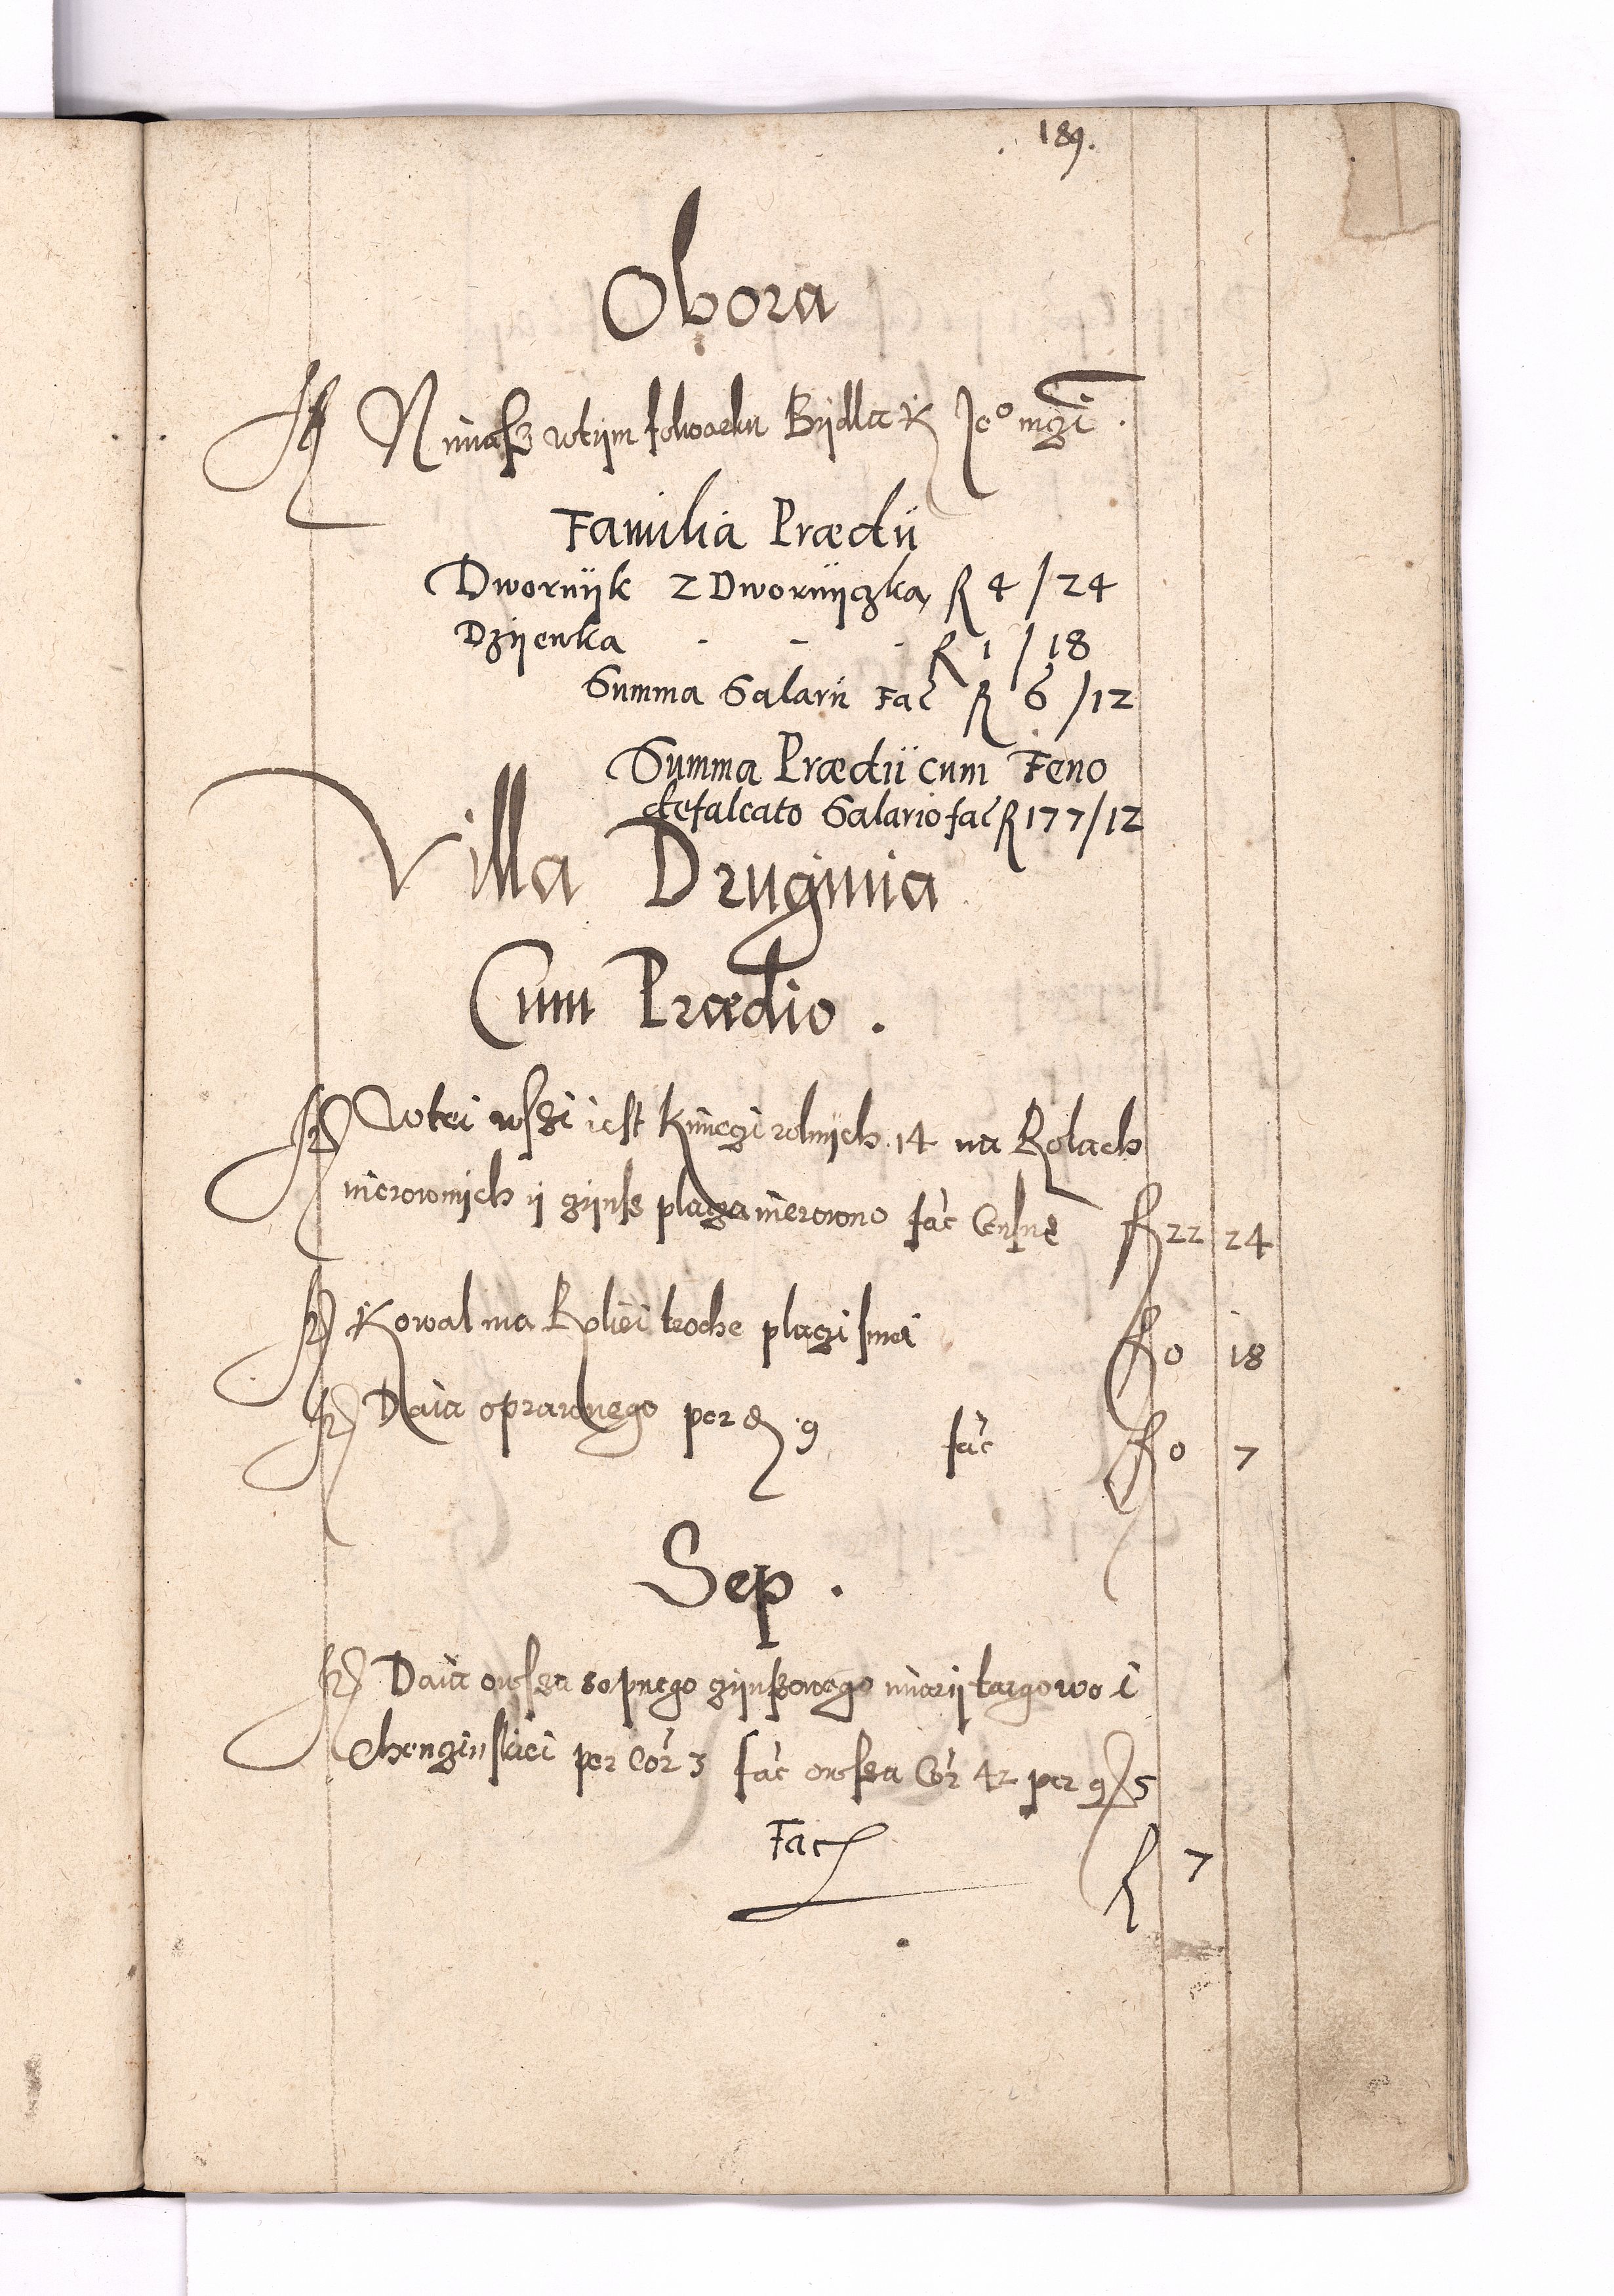 189.
Obora
It Nimasz wtym folwarku Bydla K Jeo mczi.
Familia Prædii
Dwornÿk z Dwornÿczką R 4 / 24
Dzÿewka - - - R 1 / 18
Summa Salarii Fac R 6 / 12
Summa Prædii cum Feno
defalcato Salario fac R 177 / 12
Villa Druginia
Cum Prædio.
It Wtei wszi iest Kmiegi rolnÿch 14 na Rolach
nierownÿch ÿ czÿnss plaga nierowno fac Censue R 22 24
It Kowal ma Roliei troche plagi smei R 0 18
It Daia oprawnego per d 9 fac R 0 7
Sep.
It Daia owssa sepnego czÿnszowego miarÿ targowoi
chenginskiei per Cor 3 fac owssa Cor 42 per g 5
Fac R 7